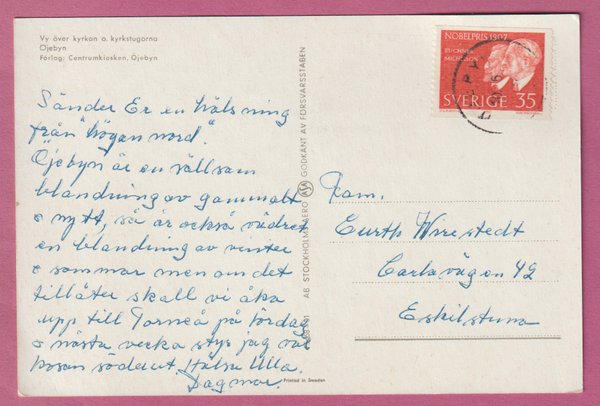 Vy över kyrkan o. kyrkstugorna
Öjebyn
Förlag: Centrumkiosken, Öjebyn
Sänder Er en hälsning
från "högan nord".
Öjebyn är en sällsam
blandning av gammalt
o nytt, så är också vädret
en blandning av vinter
o sommar men om det
tillåter skall vi åka
upp till Torneå på lördag
o nästa vecka styr jag väl
kosan söderut. Hälsa Ulla.
Dagmar.
AB STOCKHOLMS AERO
GODKÄNT AV FÖRSVARSSTABEN
Printed in Sweden
NOBELPRIS 1907
BUCHNER
MICHELSON
SVERIGE 35
Fam.
Curth Wrestedt
Carlavägen 42
Eskilstuna